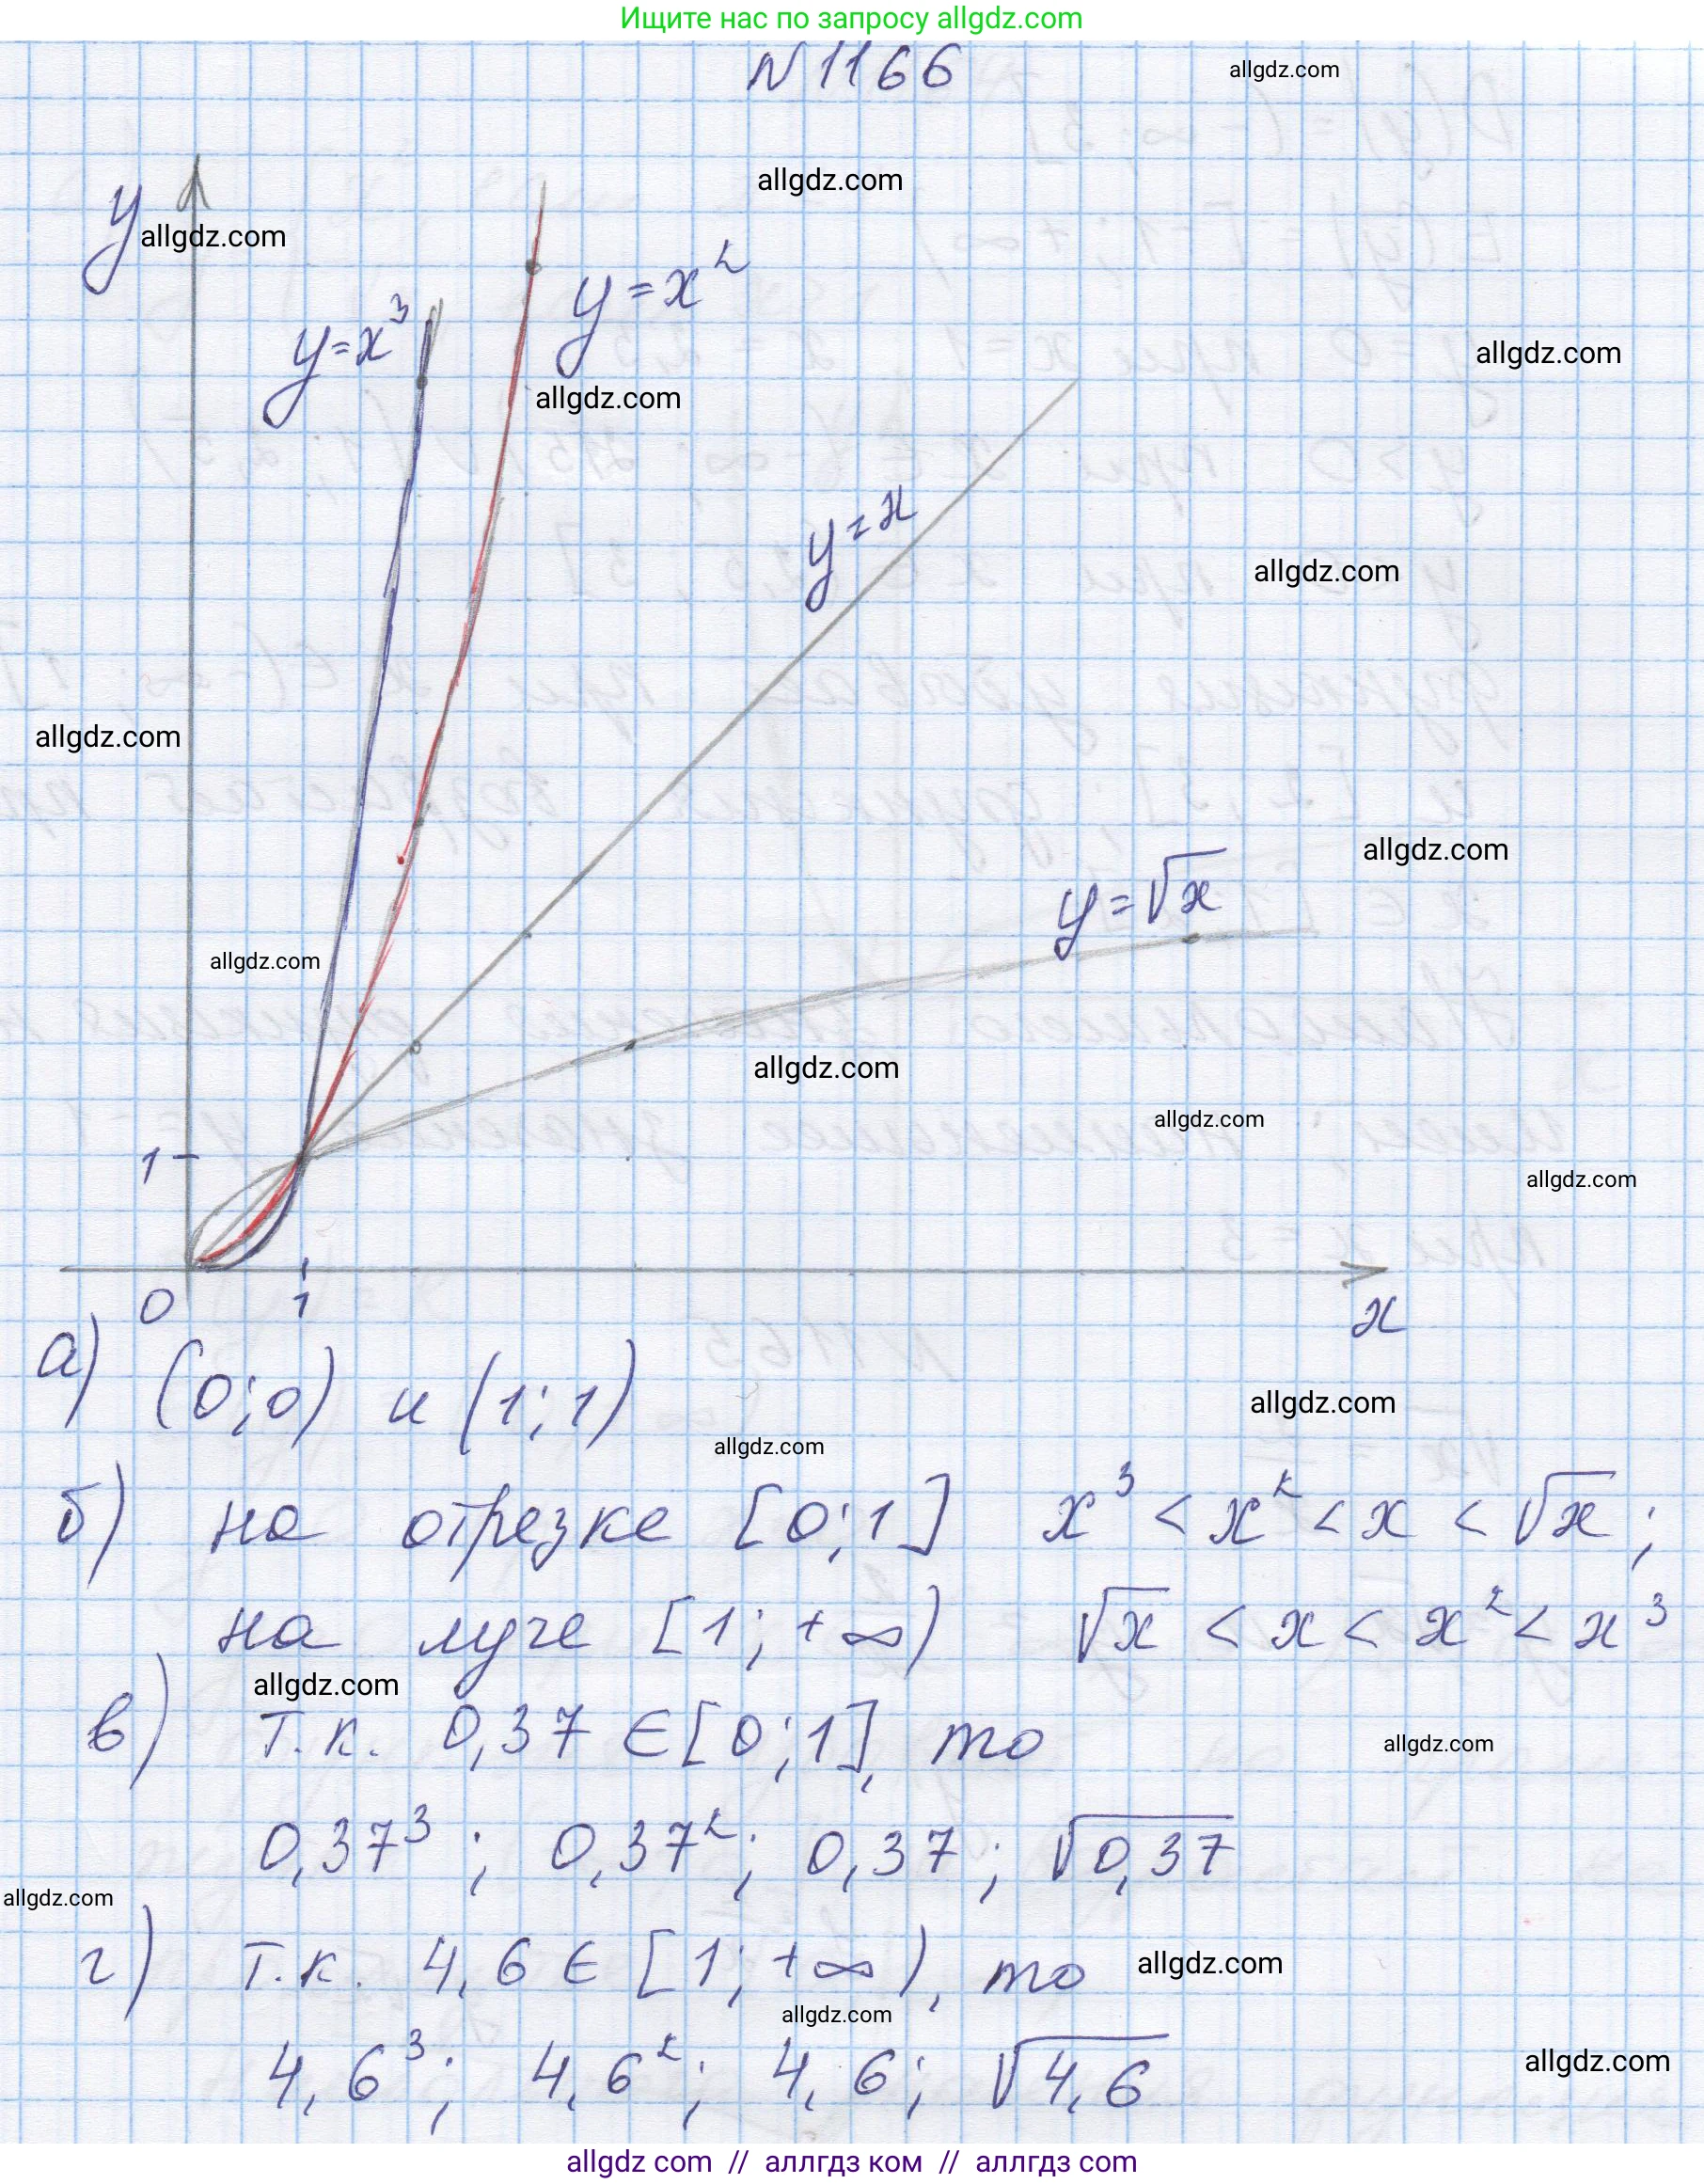 Ищите нас по запросу allgdz.com
N 1166
allgdz.com
allgdz.com
y
allgdz.com
y=x³
y=x²
allgdz.com
allgdz.com
y=x
allgdz.com
allgdz.com
allgdz.com
y=√x
allgdz.com
allgdz.com
allgdz.com
1
allgdz.com
0
1
x
а) (0;0) и (1;1)
allgdz.com
allgdz.com
б) на отрезке [0;1] x³ < x² < x < √x ;
на луче [1; +∞) √x < x < x² < x³
allgdz.com
в) т.к. 0,37 ∈ [0;1], то
allgdz.com
0,37³ ; 0,37² ; 0,37 ; √0,37
allgdz.com
г) т.к. 4,6 ∈ [1; +∞), то
allgdz.com
allgdz.com
4,6³ ; 4,6² ; 4,6 ; √4,6
allgdz.com
allgdz com // аллгдз ком // аллгдз com